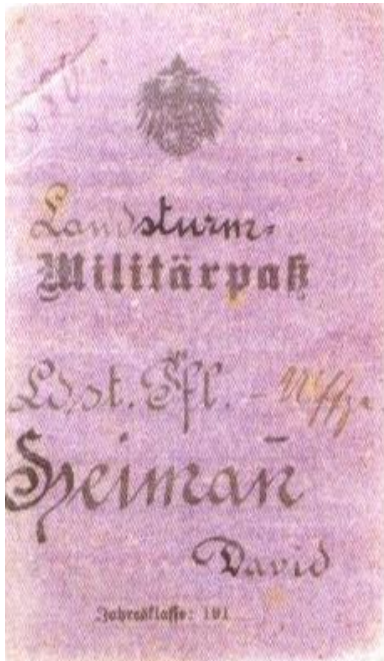 Landsturm-
Militärpaß
Ldst. Pfl. - Uffz.
Heiman̄
David
Jahresklasse: 191